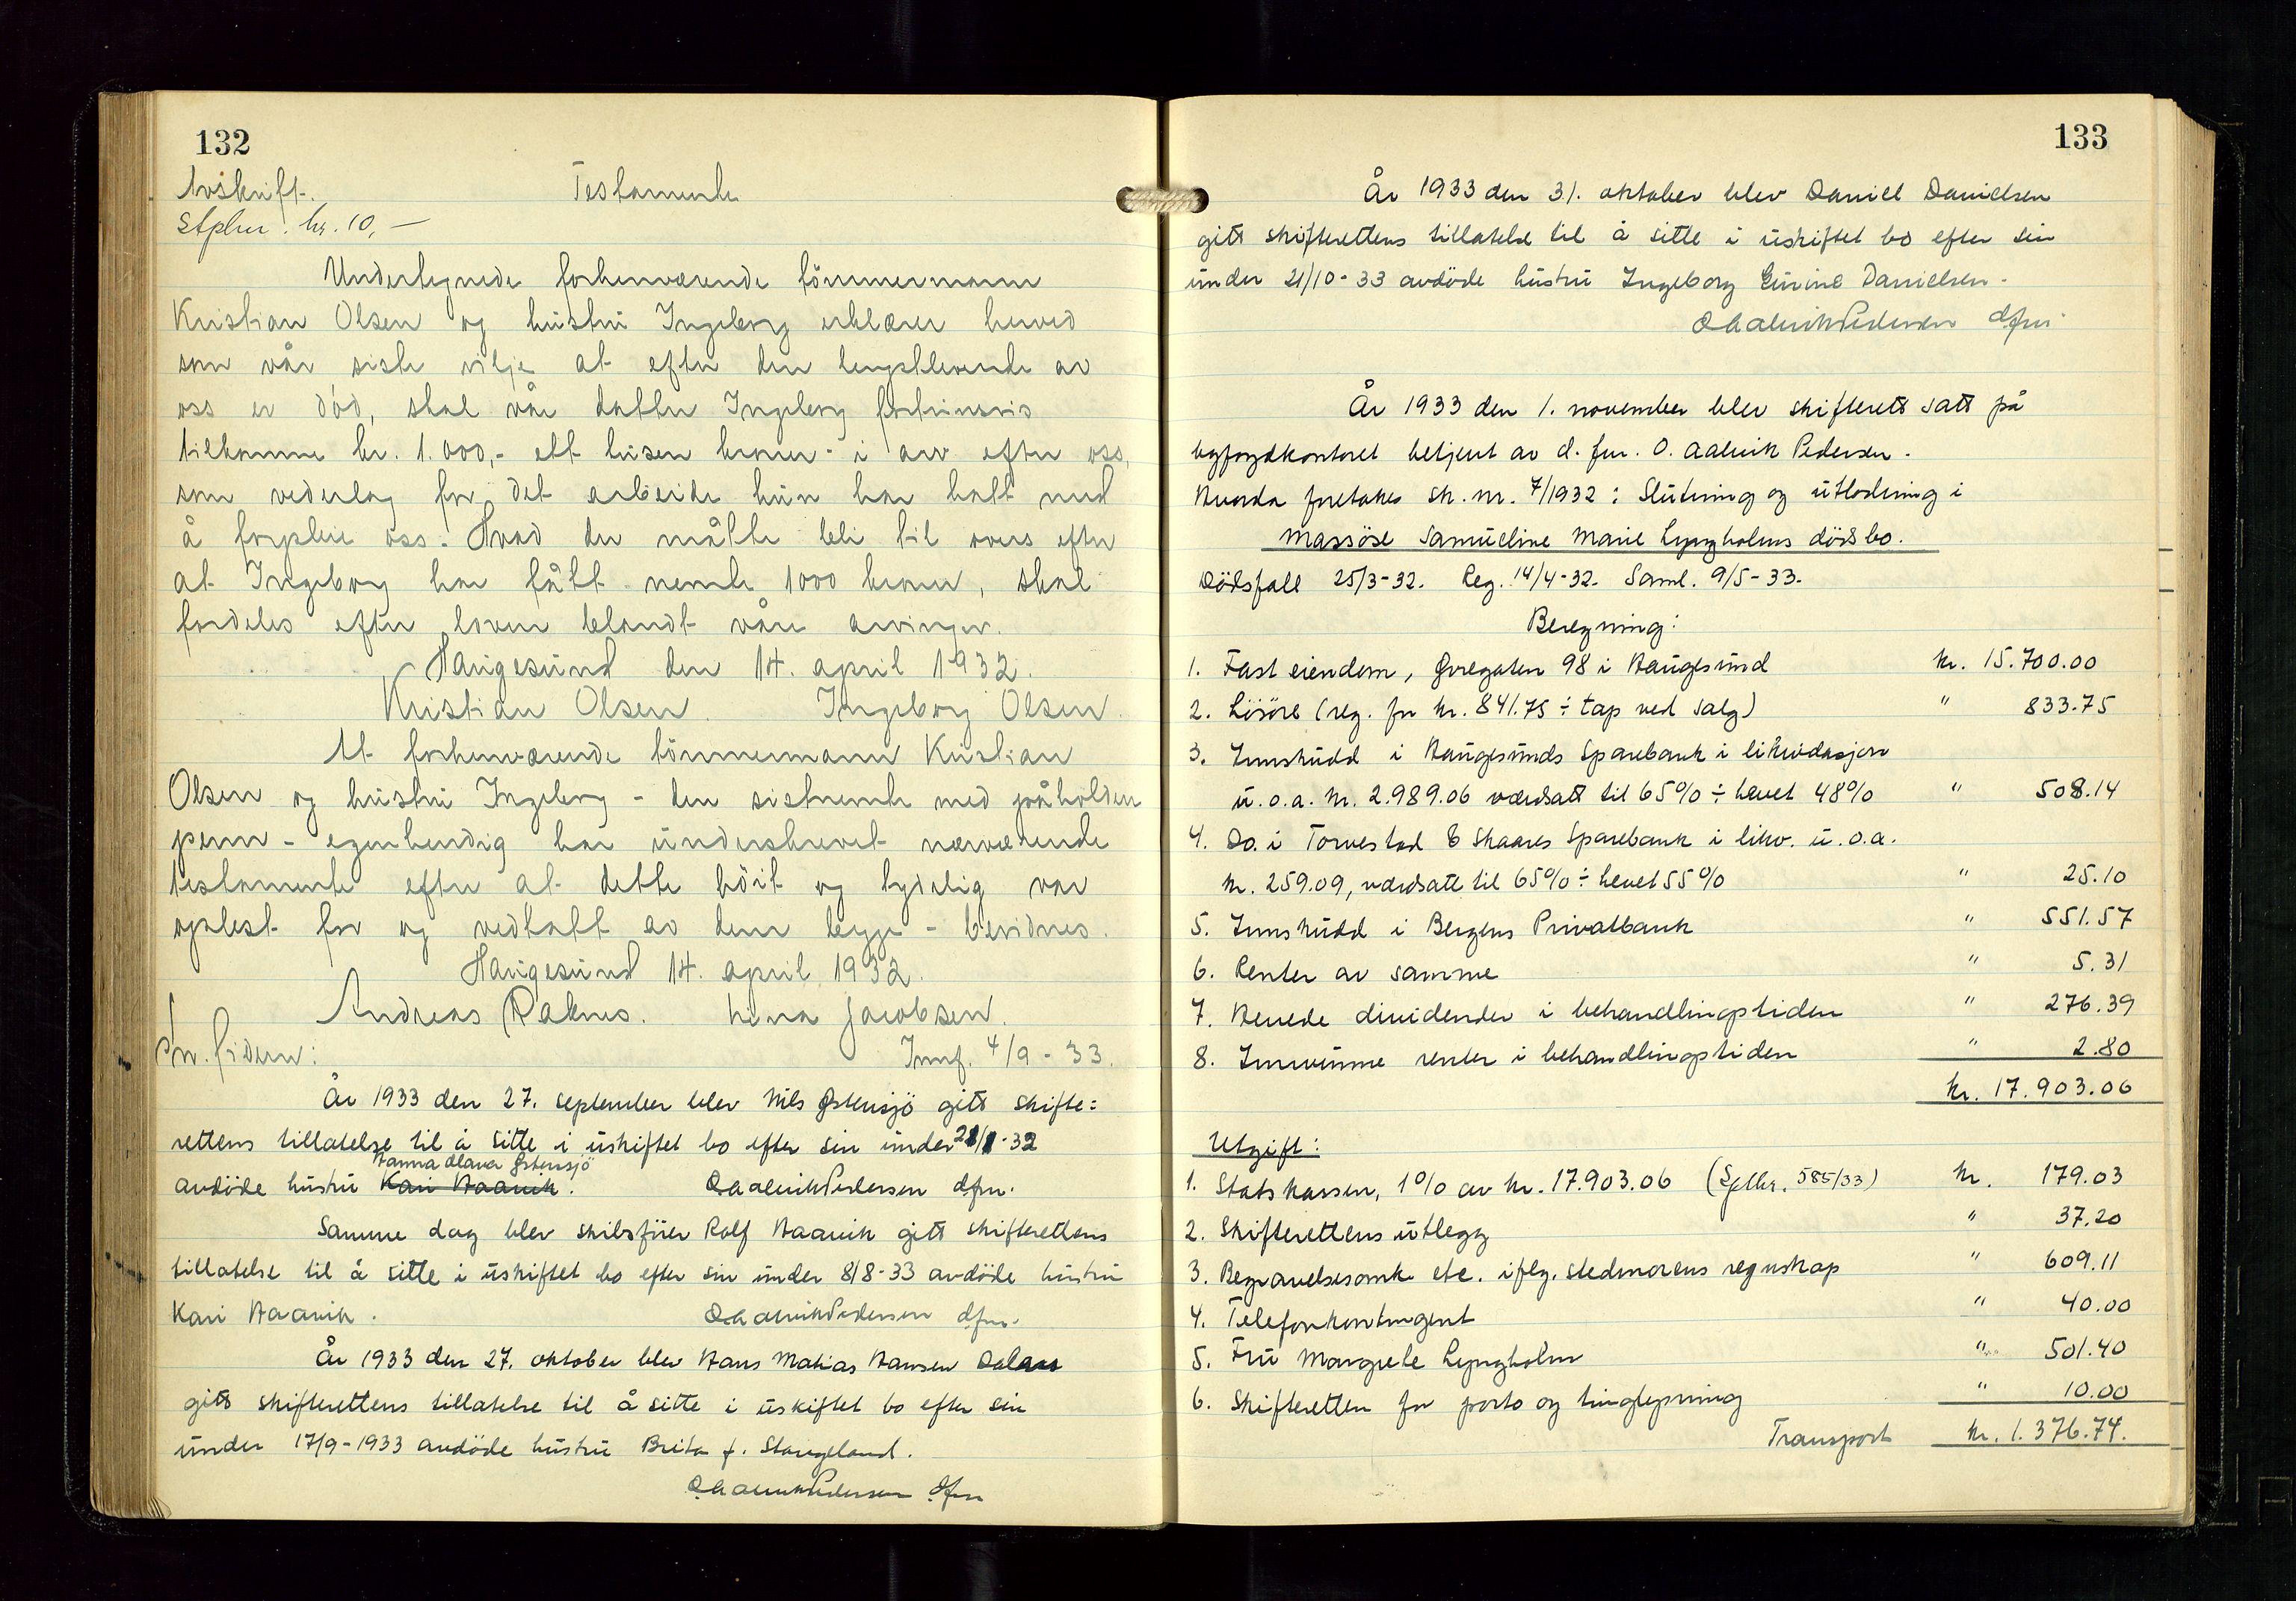 132
Avskrift.
Testamente
Stplm. kr. 10,-
Undertegnede forhenværende tömmermann
Kristian Olsen og hustru Ingeborg erklærer herved
som vår siste vilje at efter den lengstlevende av
oss er död, skal vår datter Ingeborg fortrinsvis
tilkomme kr. 1.000,- ett tusen kroner - i arv efter oss,
som vederlag for det arbeide hun har hatt med
å forpleie oss. Hvad der måtte bli til overs efter
at Ingeborg har fått nevnte 1000 kroner, skal
fordeles efter loven blandt våre arvinger.
Haugesund den 14. april 1932.
Kristian Olsen. Ingeborg Olsen.
At forhenværende tömmermann Kristian
Olsen og hustru Ingeborg - den sistnevnte med påholden
penn - egenhendig har underskrevet nærværende
testamente efter at dette höit og tydelig var
oplest for og vedtatt av dem begge - bevidnes.
Haugesund 14. april 1932.
Andreas Raknes. Lina Jacobsen.
Innf. 4/9 - 33.
År 1933 den 27. september blev Nils Østensjö gitt skifte=
rettens tillatelse til å sitte i uskiftet bo efter sin under 21/1-32
Hanna Olava Østensjö
avdöde hustru Kari Haavik. O Aalvik Pedersen dfm.
Samme dag blev skibsfører Rolf Haavik gitt skifterettens
tillatelse til å sitte i uskiftet bo efter sin under 8/8-33 avdöde hustru
Kari Haavik. O Aalvik Pedersen dfm.
År 1933 den 27. oktober blev Hans Matias Hansen Dalen
gitt skifterettens tillatelse til å sitte i uskiftet bo efter sin
under 17/9-1933 avdöde hustru Brita f. Stangeland.
O Aalvik Pedersen dfm
133
År 1933 den 31. oktober blev Daniel Danielsen
gitt skifterettens tillatelse til å sitte i uskiftet bo efter sin
under 21/10-33 avdöde hustru Ingeborg Gurine Danielsen.
O Aalvik Pedersen dfm.
År 1933 den 1. november blev skifterett satt på
byfogdkontoret betjent av d. fm. O. Aalvik Pedersen.
Hvorda foretokes sk. nr. 7/1932: Slutning og utlodning i
massöse Samueline Marie Lyngholms dödsbo.
Dödsfall 25/3-32. Reg. 14/4-32. Saml. 9/5-33.
Beregning:
1. Fast eiendom, Gvregaten 98 i Haugesund kr. 15.700.00
2. Lösöre (reg. for kr. 841.75 ÷ tap ved salg) " 833.75
3. Innskudd i Haugesunds Sparebank i likvidasjon
u.o.a. kr. 2.989.06 verdsatt til 65% ÷ hevet 48% " 508.14
4. Do. i Torvestad & Skaares Sparebank i likv. u.o.a.
kr. 259.09, verdsatt til 65% ÷ hevet 55% " 25.10
5. Innskudd i Bergens Privatbank " 551.57
6. Renter av samme " 5.31
7. Hevede dividender i behandlingstiden " 276.39
8. Innvunne renter i behandlingstiden " 2.80
kr. 17.903.06
Utgift:
1. Statskassen, 1% av kr. 17.903.06 (Spkr. 585/33) kr. 179.03
2. Skifterettens utlegg " 37.20
3. Begravelsesomk. etc. iflg. stedmorens regnskap " 609.11
4. Telefonkontingent " 40.00
5. Fru Margrete Lyngholm " 501.40
6. Skifteretten for porto og tinglysning " 10.00
Transport kr. 1.376.74.